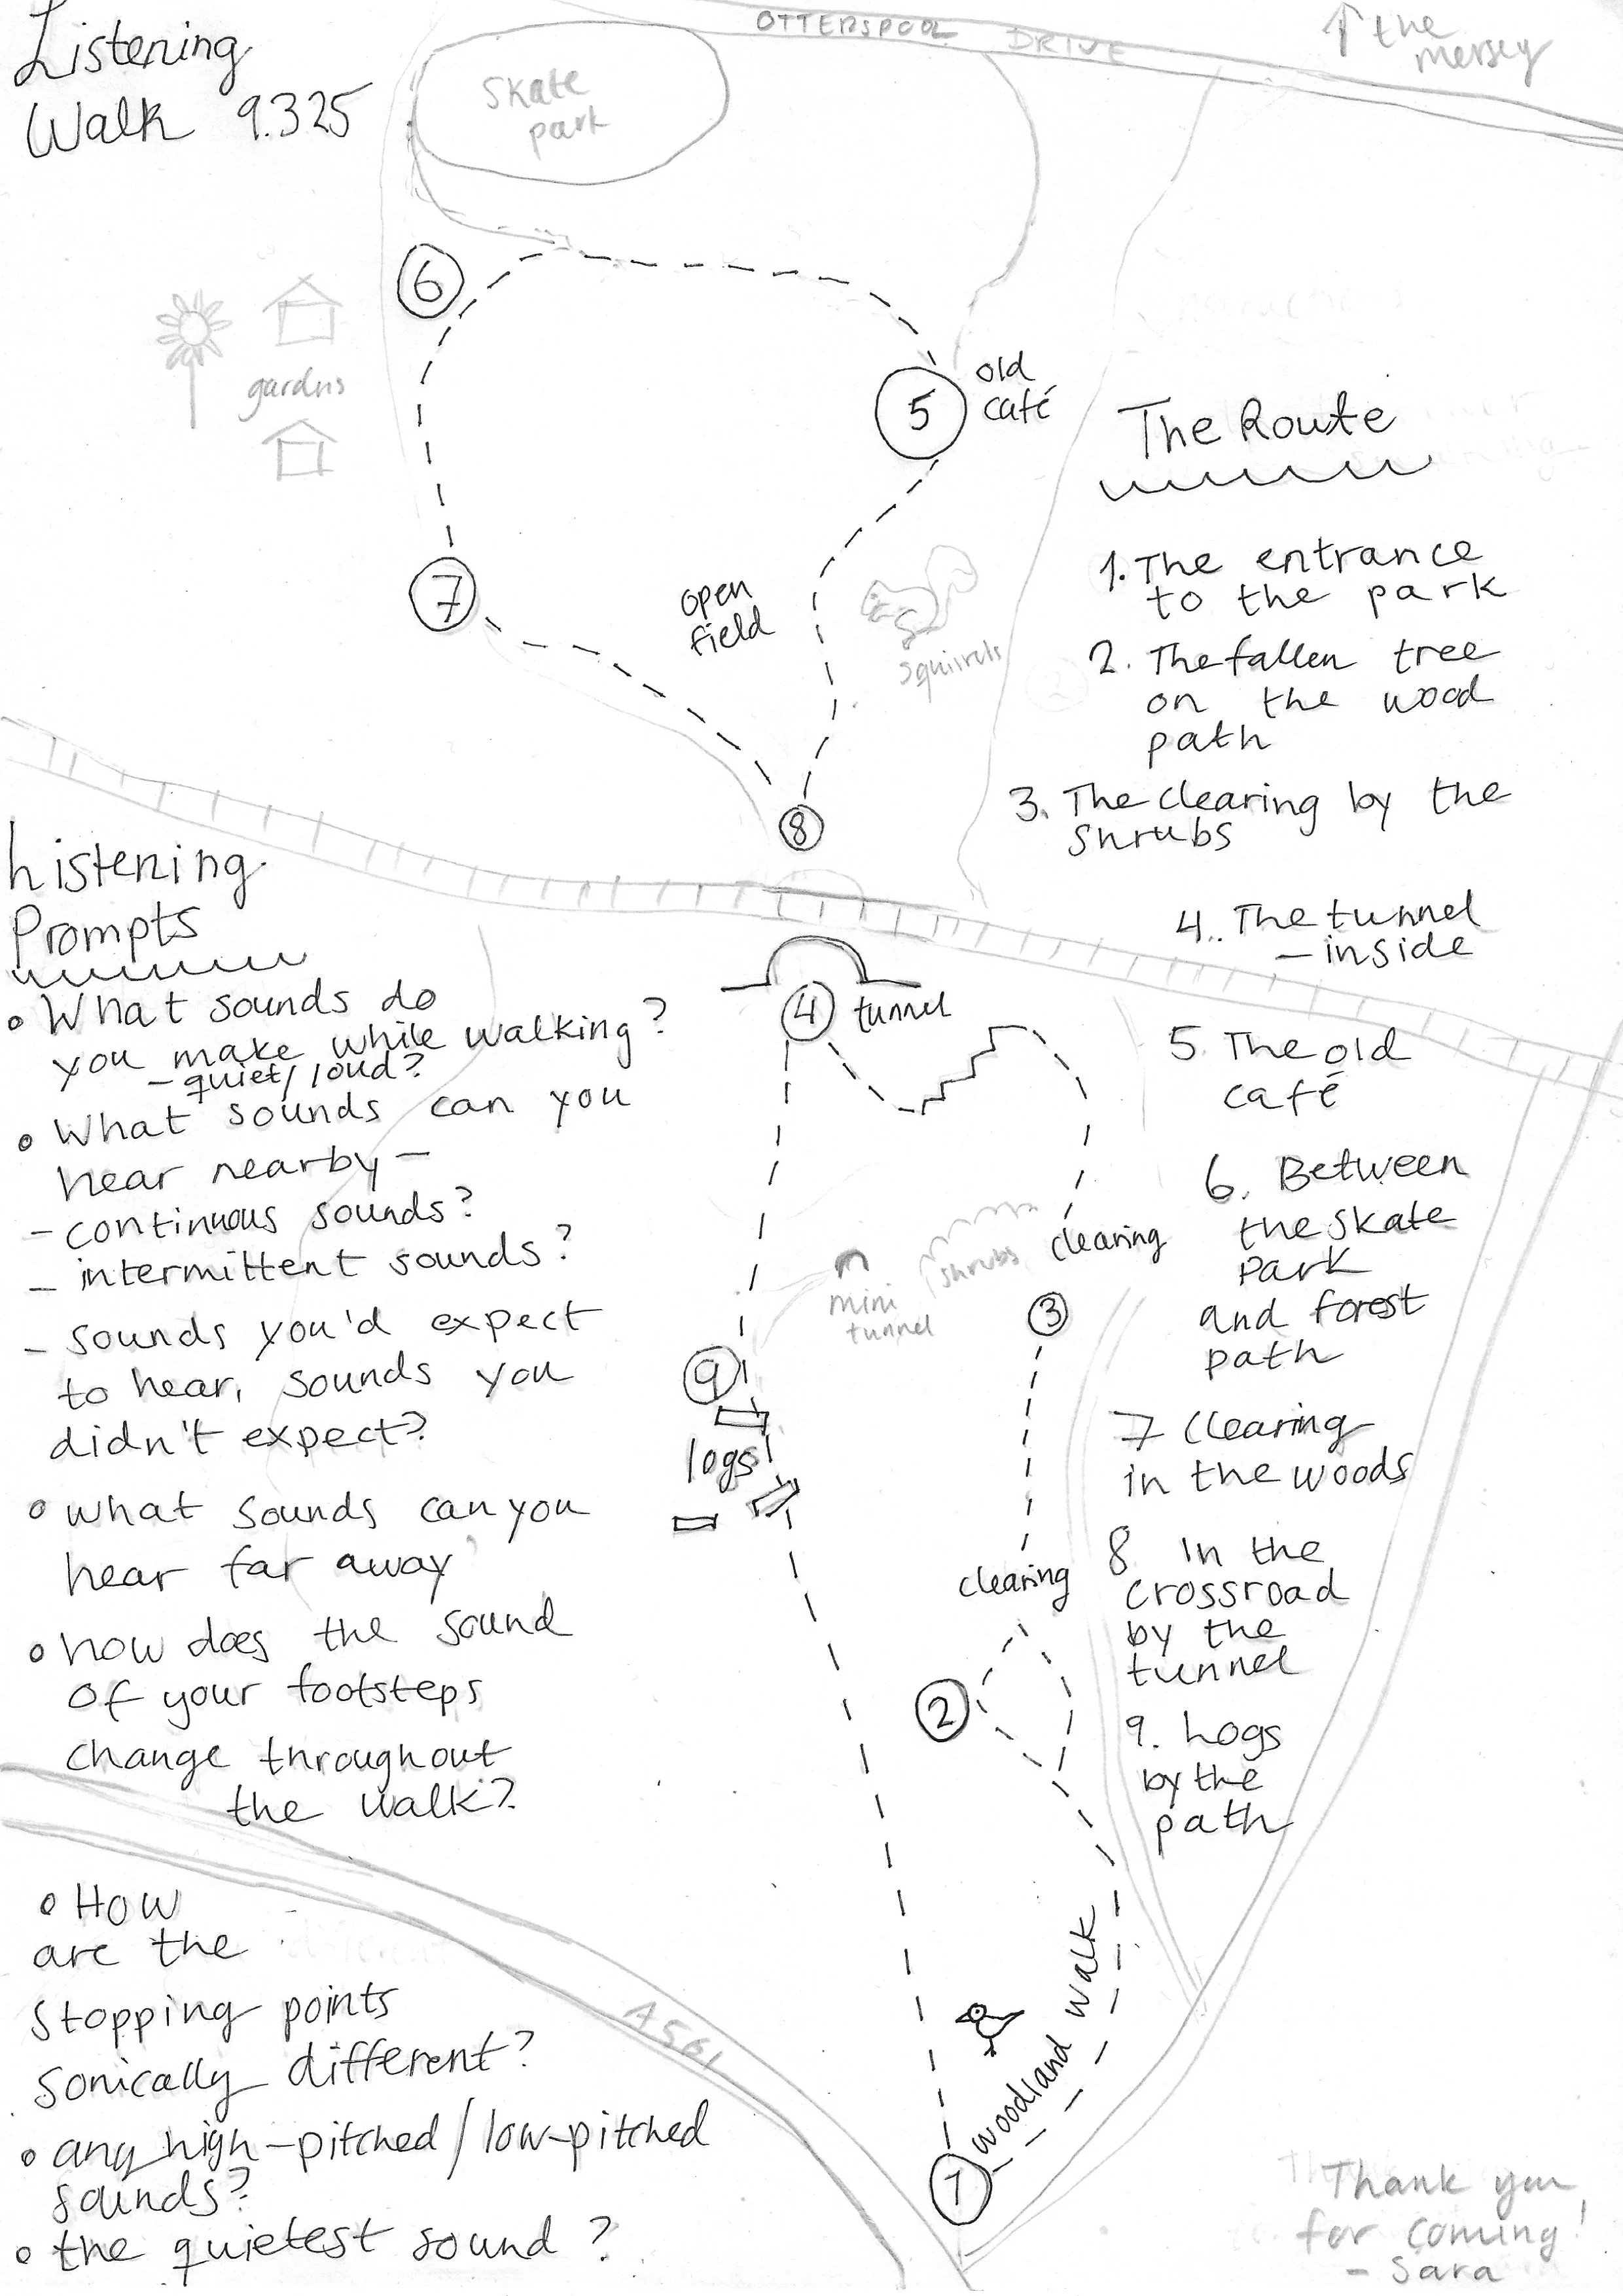 Listening
Walk 9.325
OTTERSPOOL DRIVE
↑ the
mersey
Skate
park
6
gardns
5
old
café
7
open
field
squirrels
8
The Route
1. The entrance
to the park
2. The fallen tree
on the wood
path
3. The clearing by the
shrubs
4.. The tunnel
– inside
5. The old
café
6. Between
the skate
park
and forest
path
7 Clearing
in the woods
8 In the
crossroad
by the
tunnel
9. Logs
by the
path
Listening
Prompts
• What sounds do
you make while walking?
– quiet/loud?
• What sounds can you
hear nearby –
– continuous sounds?
– intermittent sounds?
– sounds you'd expect
to hear, sounds you
didn't expect?
• what sounds can you
hear far away
• how does the sound
of your footsteps
change throughout
the walk?
• How
are the
stopping points
sonically different?
• any high-pitched/low-pitched
sounds?
• the quietest sound?
4 tunnel
shrubs
clearing
mini
tunnel
3
9
logs!
clearing
2
A561
woodland walk
1
Thank you
for coming!
– Sara